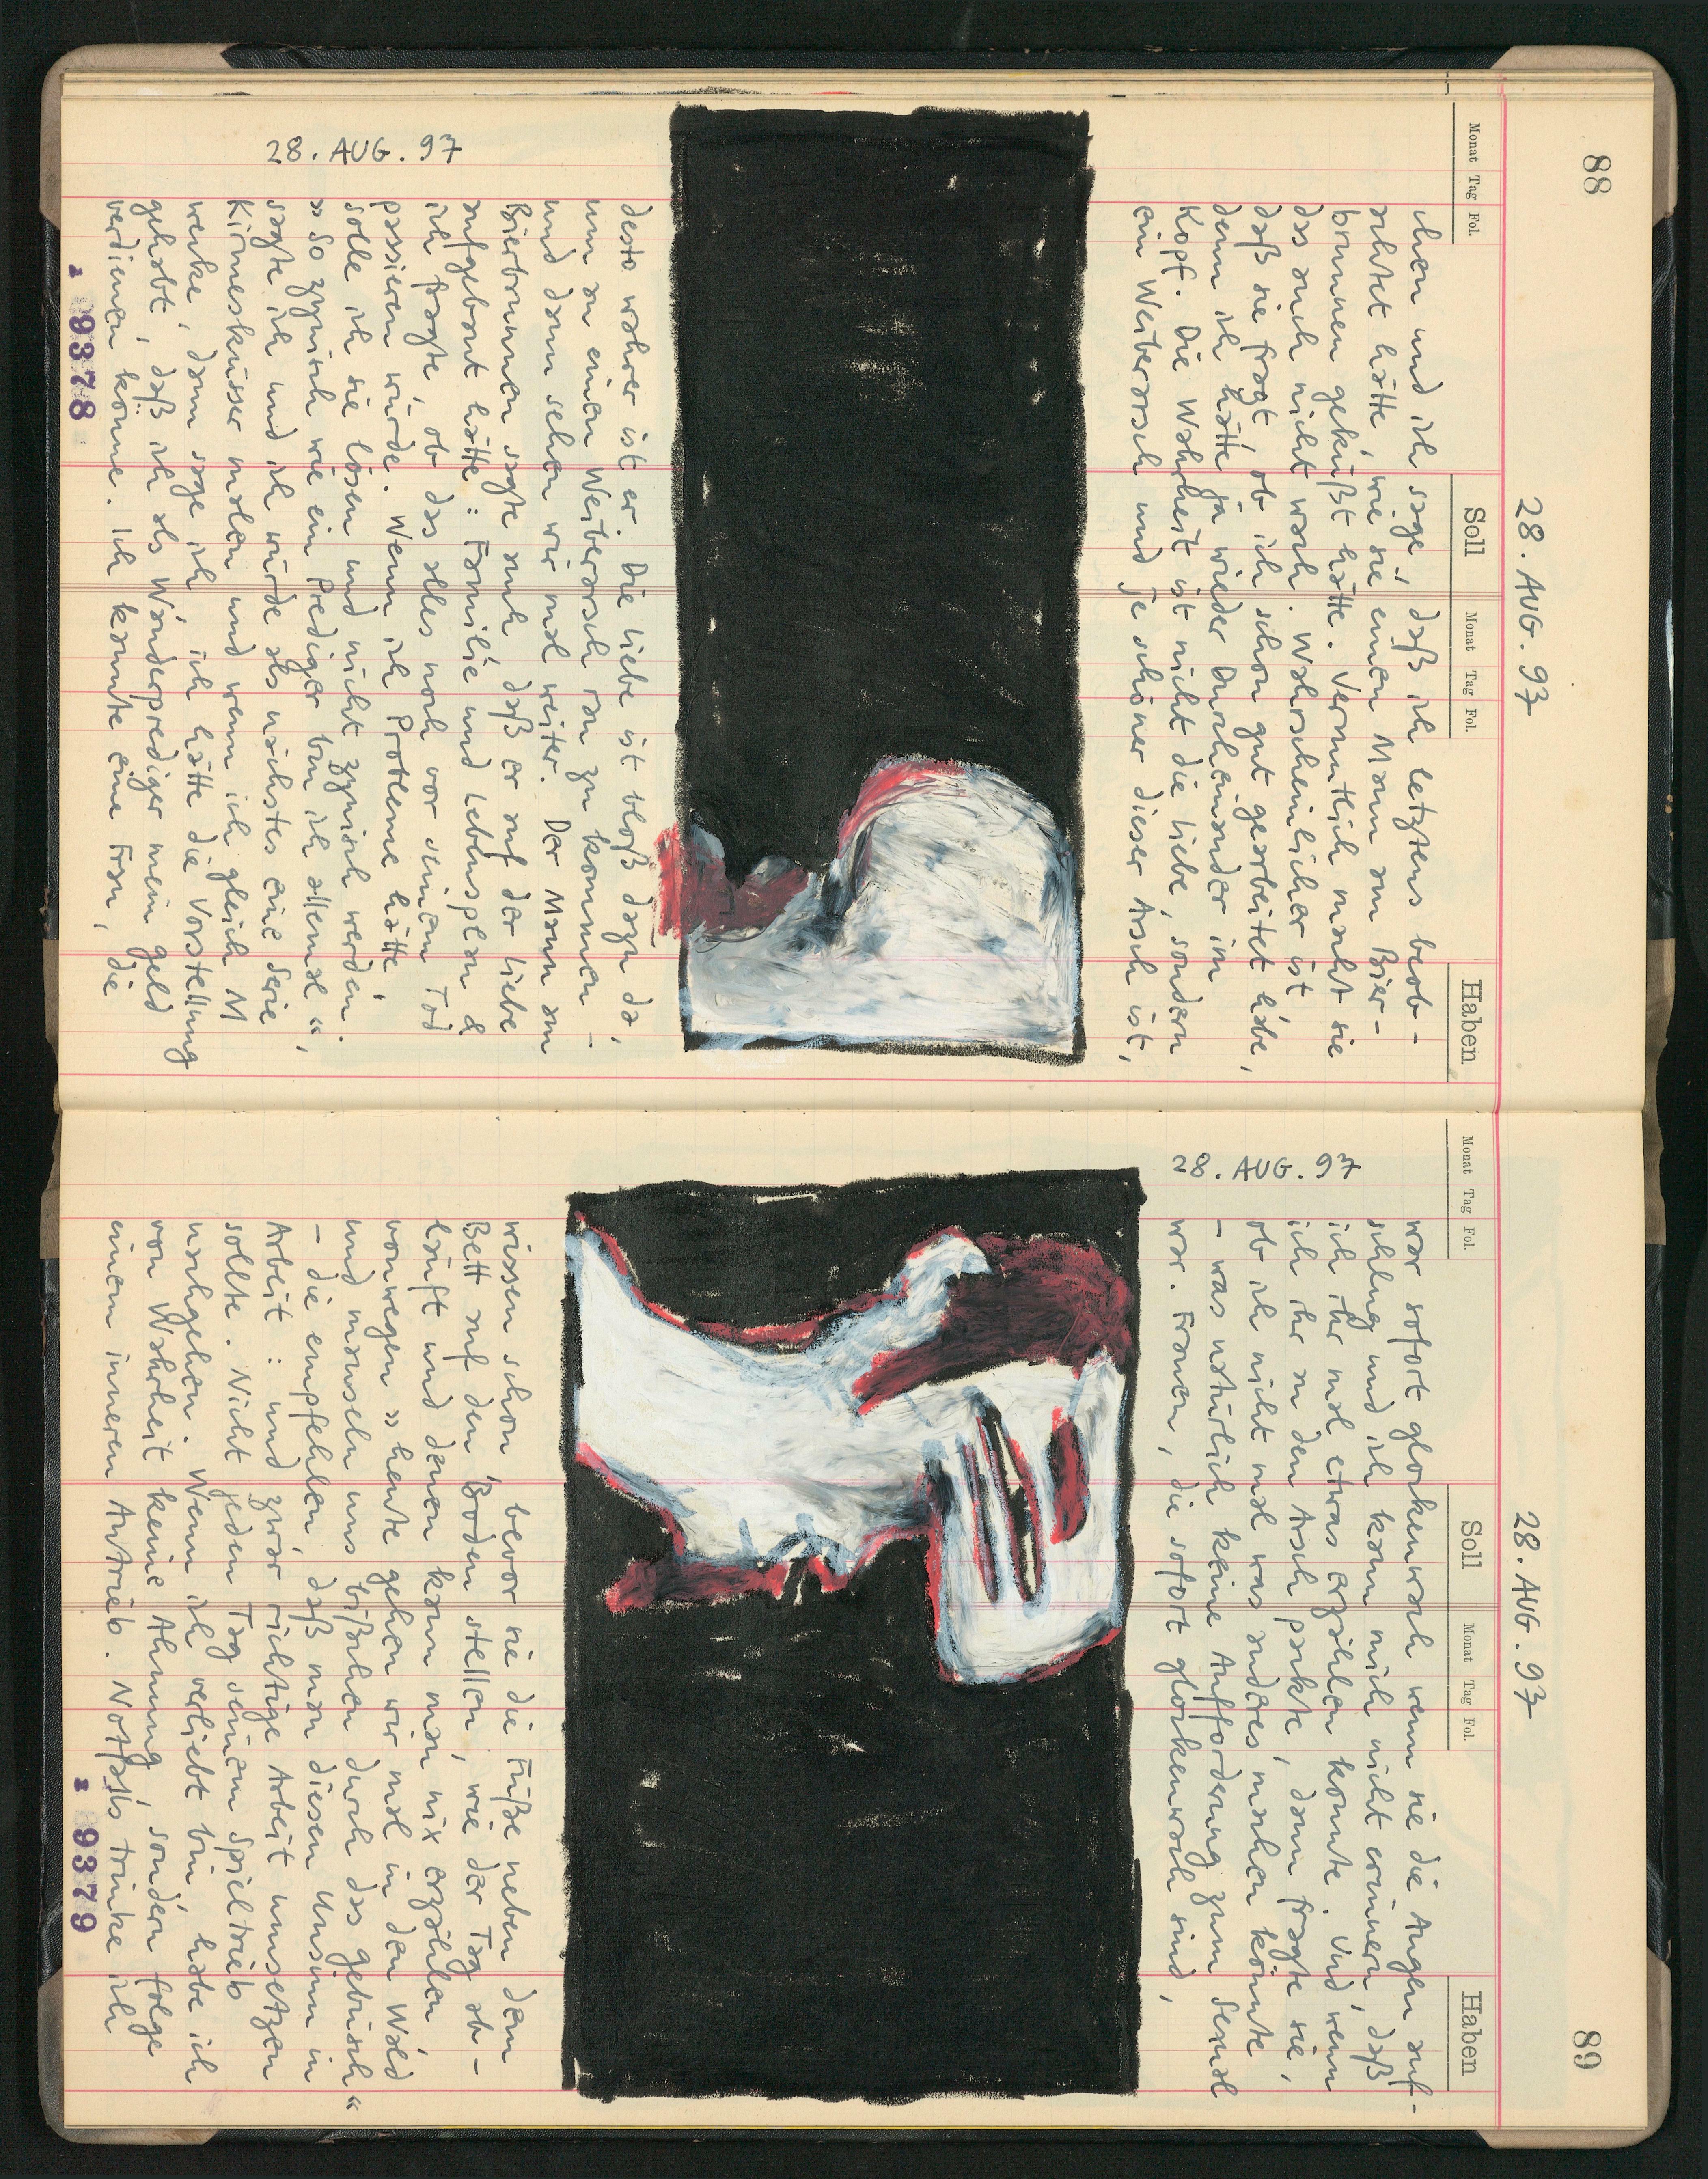 88
28. AUG. 97
Monat Tag Fol. Soll Monat Tag Fol. Haben
chen und ich sage, daß ich letztens beob-
achtet hätte, wie sie einen Mann am Bier-
brunnen geküßt hätte. Vermutlich macht sie
das auch nicht wach. Wahrscheinlicher ist,
daß sie fragt, ob ich schon gut gearbeitet habe,
denn ich hätte ja wieder Durcheinander im
Kopf. Die Wahrheit ist nicht die Liebe, sondern
ein Weiberarsch und je schöner dieser Arsch ist,
desto wahrer ist er. Die Liebe ist bloß dazu da,
um an einen Weiberarsch ran zu kommen –
und dann sehen wir mal weiter. Der Mann am
Bierbrunnen sagte auch daß er auf der Liebe
aufgebaut hätte: Familie und Lebensplan &
ich fragte, ob das alles noch vor seinem Tod
passieren würde. Wenn ich Probleme hätte,
solle ich sie lösen und nicht zynisch werden.
» So zynisch wie ein Prediger bin ich allemal «,
28. AUG. 97
sagte ich und ich würde als nächstes eine Serie
Kirmesküsser malen und wenn ich gleich M
wecke, dann sage ich, ich hätte die Vorstellung
gehabt, daß ich als Wanderprediger mein Geld
verdienen könne. Ich kannte eine Frau, die
9378
89
28. AUG. 97
Monat Tag Fol. Soll Monat Tag Fol. Haben
war sofort glockenwach wenn sie die Augen auf-
schlug und ich kann mich nicht erinnern, daß
ich ihr mal etwas erzählen konnte. Und wenn
28. AUG. 97
ich ihr an den Arsch packte, dann fragte sie,
ob ich nicht mal was anderes machen könnte
– was natürlich keine Aufforderung zum Sexual
war. Frauen, die sofort glockenwach sind,
wissen schon, bevor sie die Füße neben dem
Bett auf den Boden stellen, wie der Tag ab-
läuft und denen kann man nix erzählen,
vonwegen » heute gehen wir mal in den Wald
und mauseln uns bißchen durch das Gebüsch «
– die empfehlen, daß man diesen Unsinn in
Arbeit: und zwar richtige Arbeit umsetzen
sollte. Nicht jeden Tag seinem Spieltrieb
nachgehen. Wenn ich verliebt bin, habe ich
von Wahrheit keine Ahnung, sondern folge
einem inneren Antrieb. Notfalls trinke ich
9379